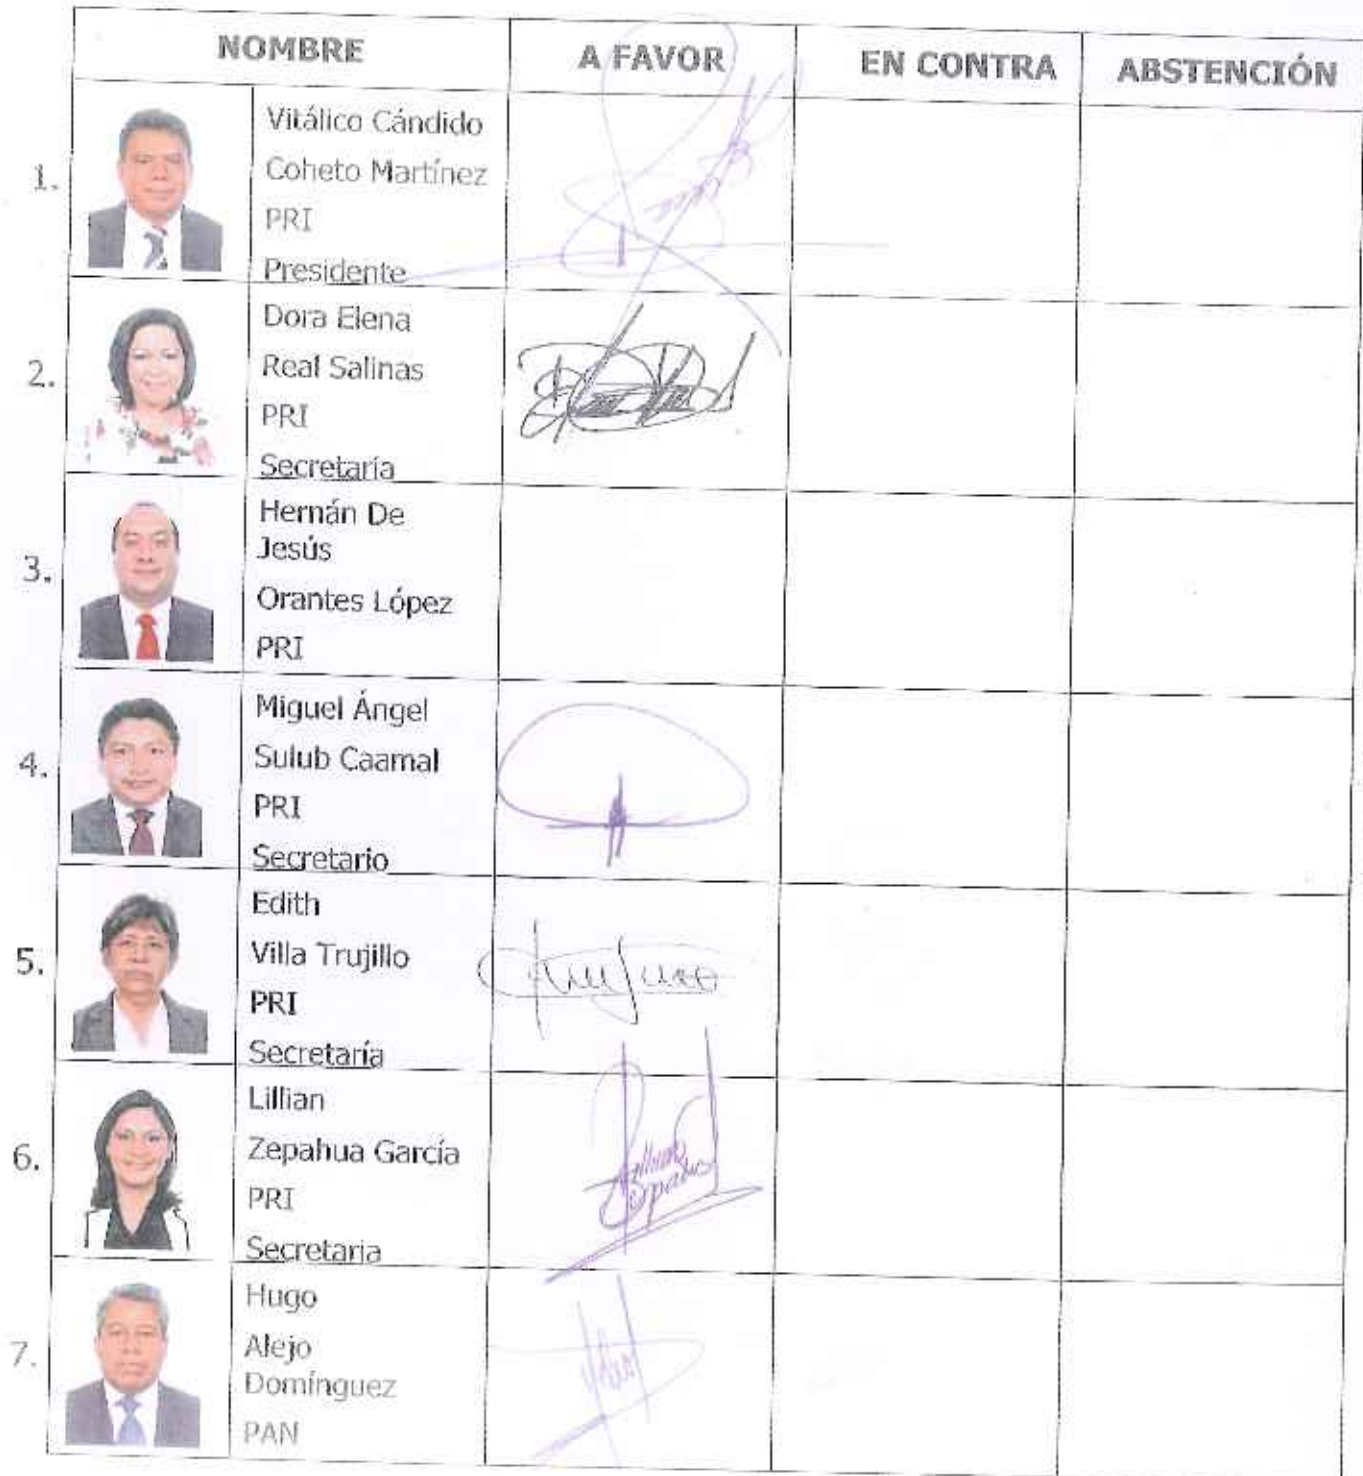 NOMBRE A FAVOR EN CONTRA ABSTENCIÓN
1.
Vitálico Cándido
Coheto Martínez
PRI
Presidente
2.
Dora Elena
Real Salinas
PRI
Secretaria
3.
Hernán De
Jesús
Orantes López
PRI
4.
Miguel Ángel
Sulub Caamal
PRI
Secretario
5.
Edith
Villa Trujillo
PRI
Secretaría
6.
Lillian
Zepahua García
PRI
Secretaria
7.
Hugo
Alejo
Domínguez
PAN